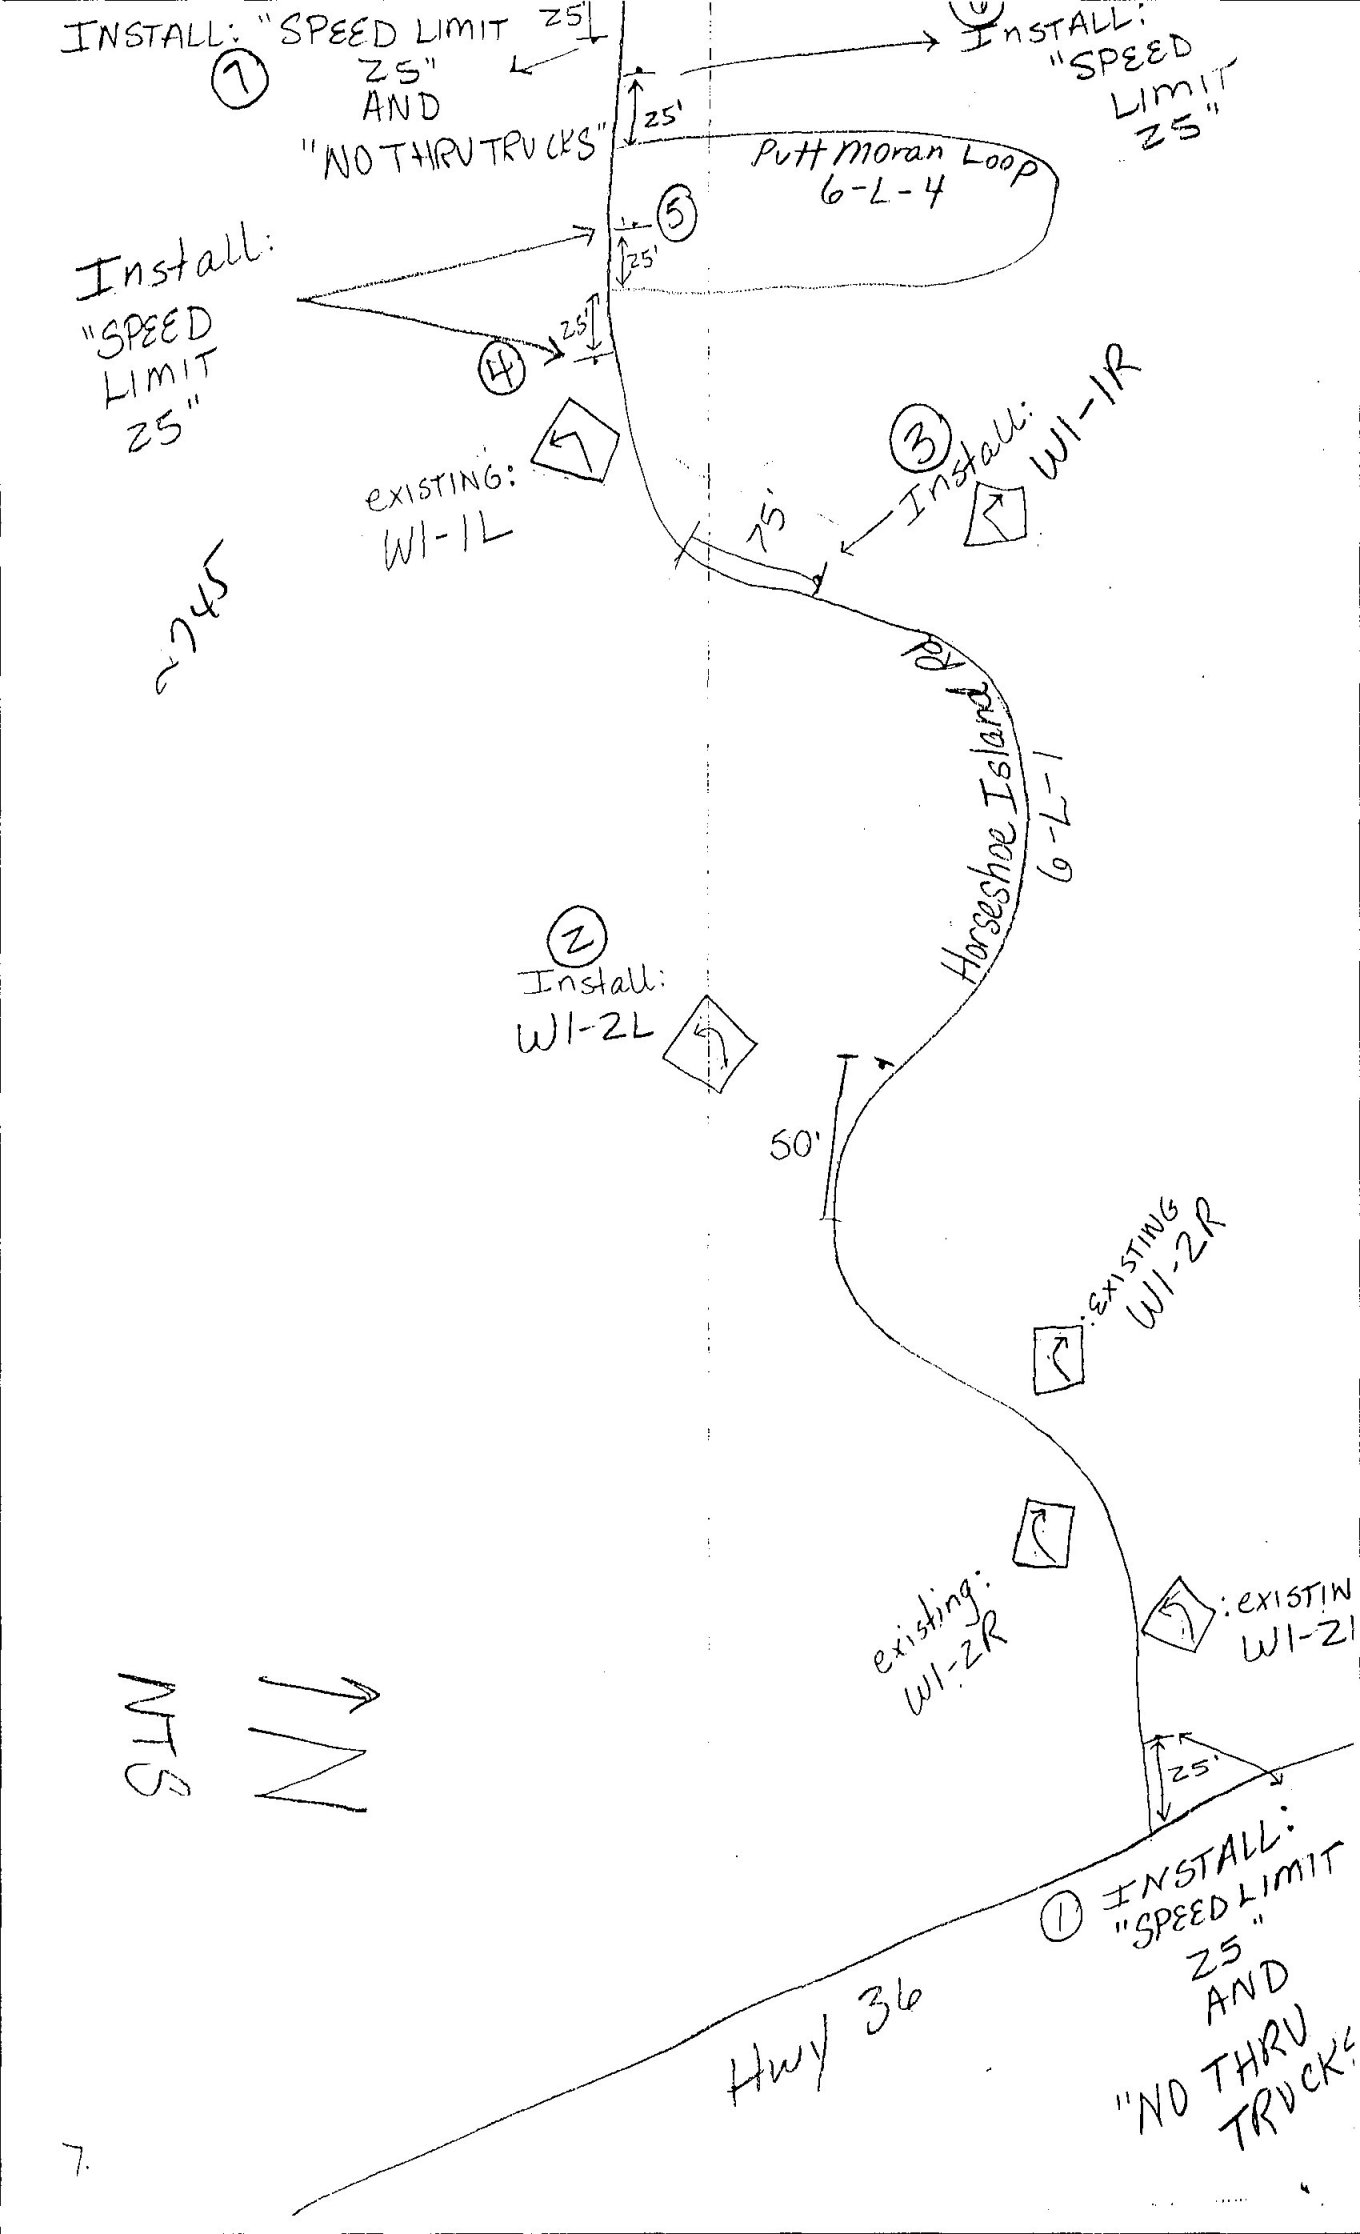 INSTALL: "SPEED LIMIT
25"
AND
"NO THRU TRUCKS"
7
25'
6
InSTALL:
"SPEED
LIMIT
25"
25'
Putt Moran Loop
6-L-4
5
25'
Install:
"SPEED
LIMIT
25"
25'
4
existing:
W1-1L
3
Install:
W1-1R
75'
~745
Horseshoe Island Rd
6-L-1
2
Install:
W1-2L
50'
:existing
W1-2R
existing:
W1-2R
:existin
W1-2
NTS
N
25'
1
INSTALL:
"SPEED LIMIT
25"
AND
"NO THRU
TRUCKS
Hwy 36
7.